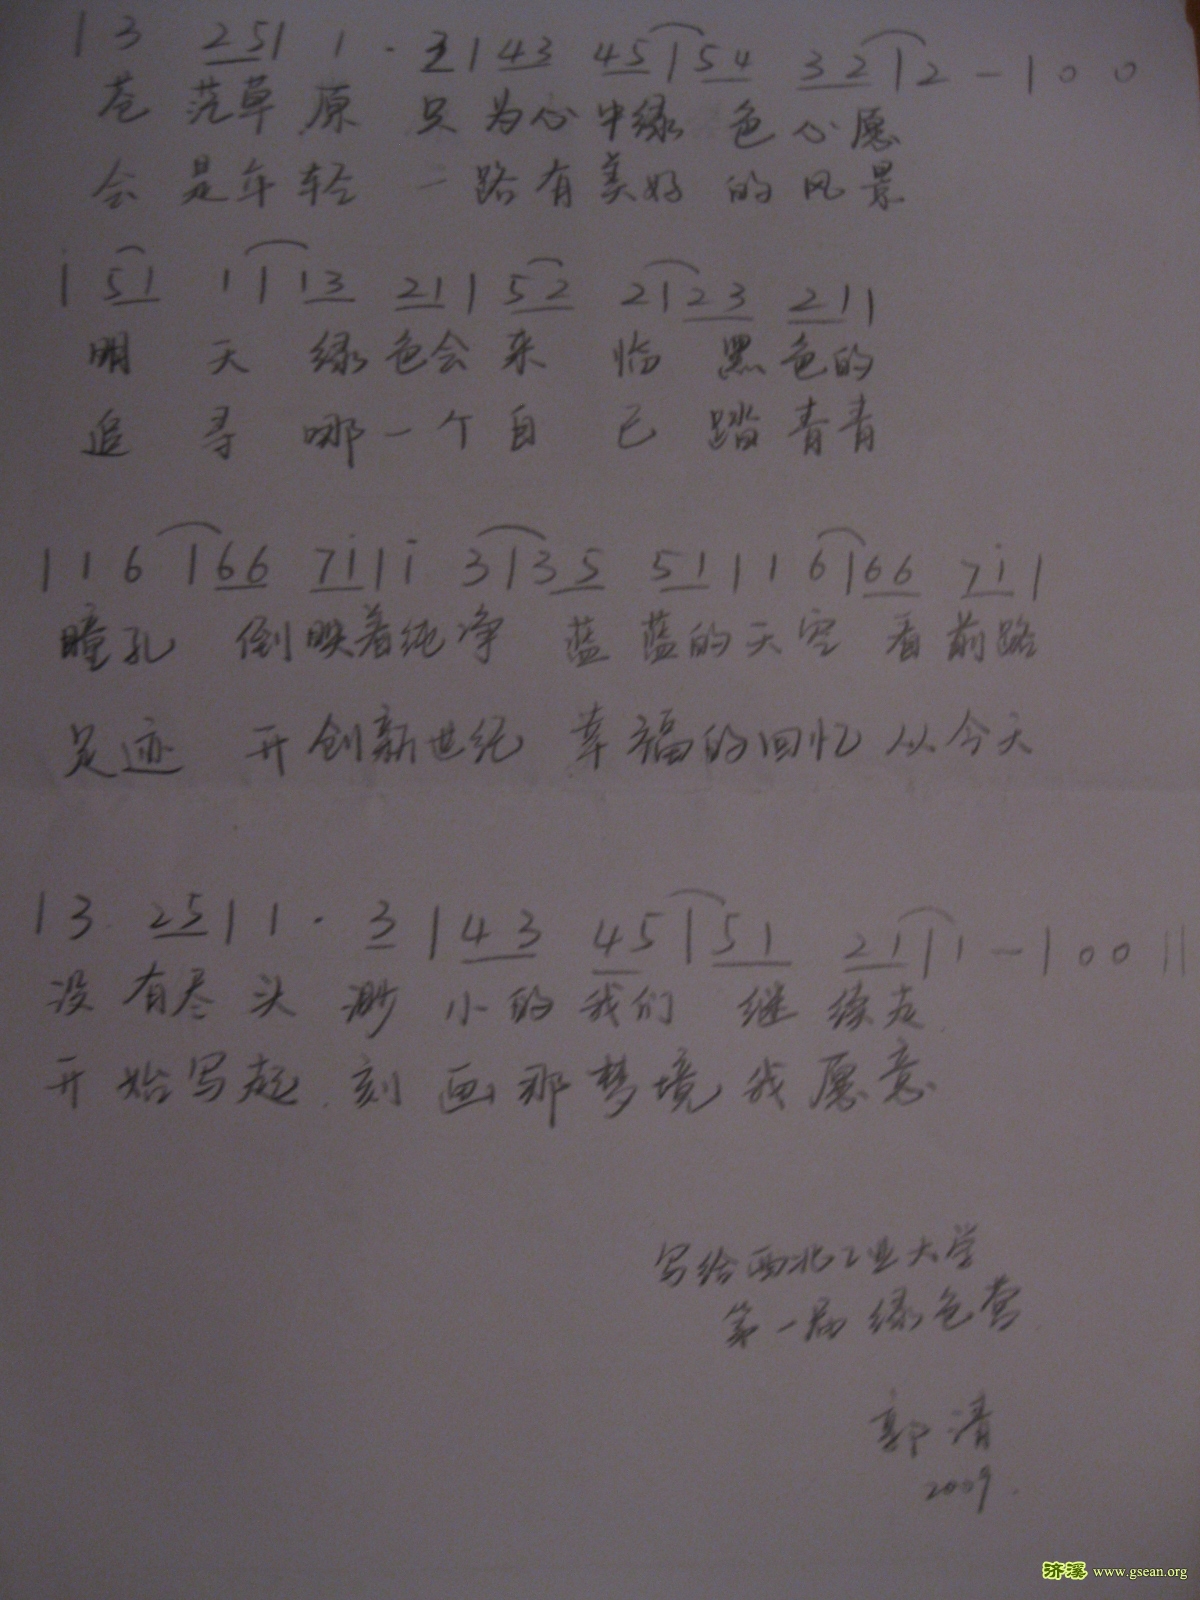 1 3 2 5 | 1 · 3 | 4 3 4 5 | 5 4 3 2 | 2 — | 0 0
苍 茫草 原 只 为心 中绿 色 心 愿
会 是年 轻 一 路有 美好 的 风 景
i 5 1 1 | 1 3 2 1 | 5 2 2 | 2 3 2 1 |
明 天 绿 色会 来 临 黑 色的
追 寻 哪 一 个 自 己 踏 青青
| 1 6 | 6 6 7 i | i 3 | 3 5 5 1 | 1 6 | 6 6 7 i |
瞳孔 倒映着纯净 蓝 蓝的天空 看前路
足迹 开创新世纪 幸福的回忆 从今天
1 3 2 5 | 1 · 3 | 4 3 4 5 | 5 1 2 1 | 1 — | 0 0 ||
没 有尽 头 渺 小 的 我们 继 续走
开 始写起 刻 画 那 梦境 我 愿 意
写给西北工业大学
第一届 绿色营
郭清
2009.
济溪 www.gsean.org